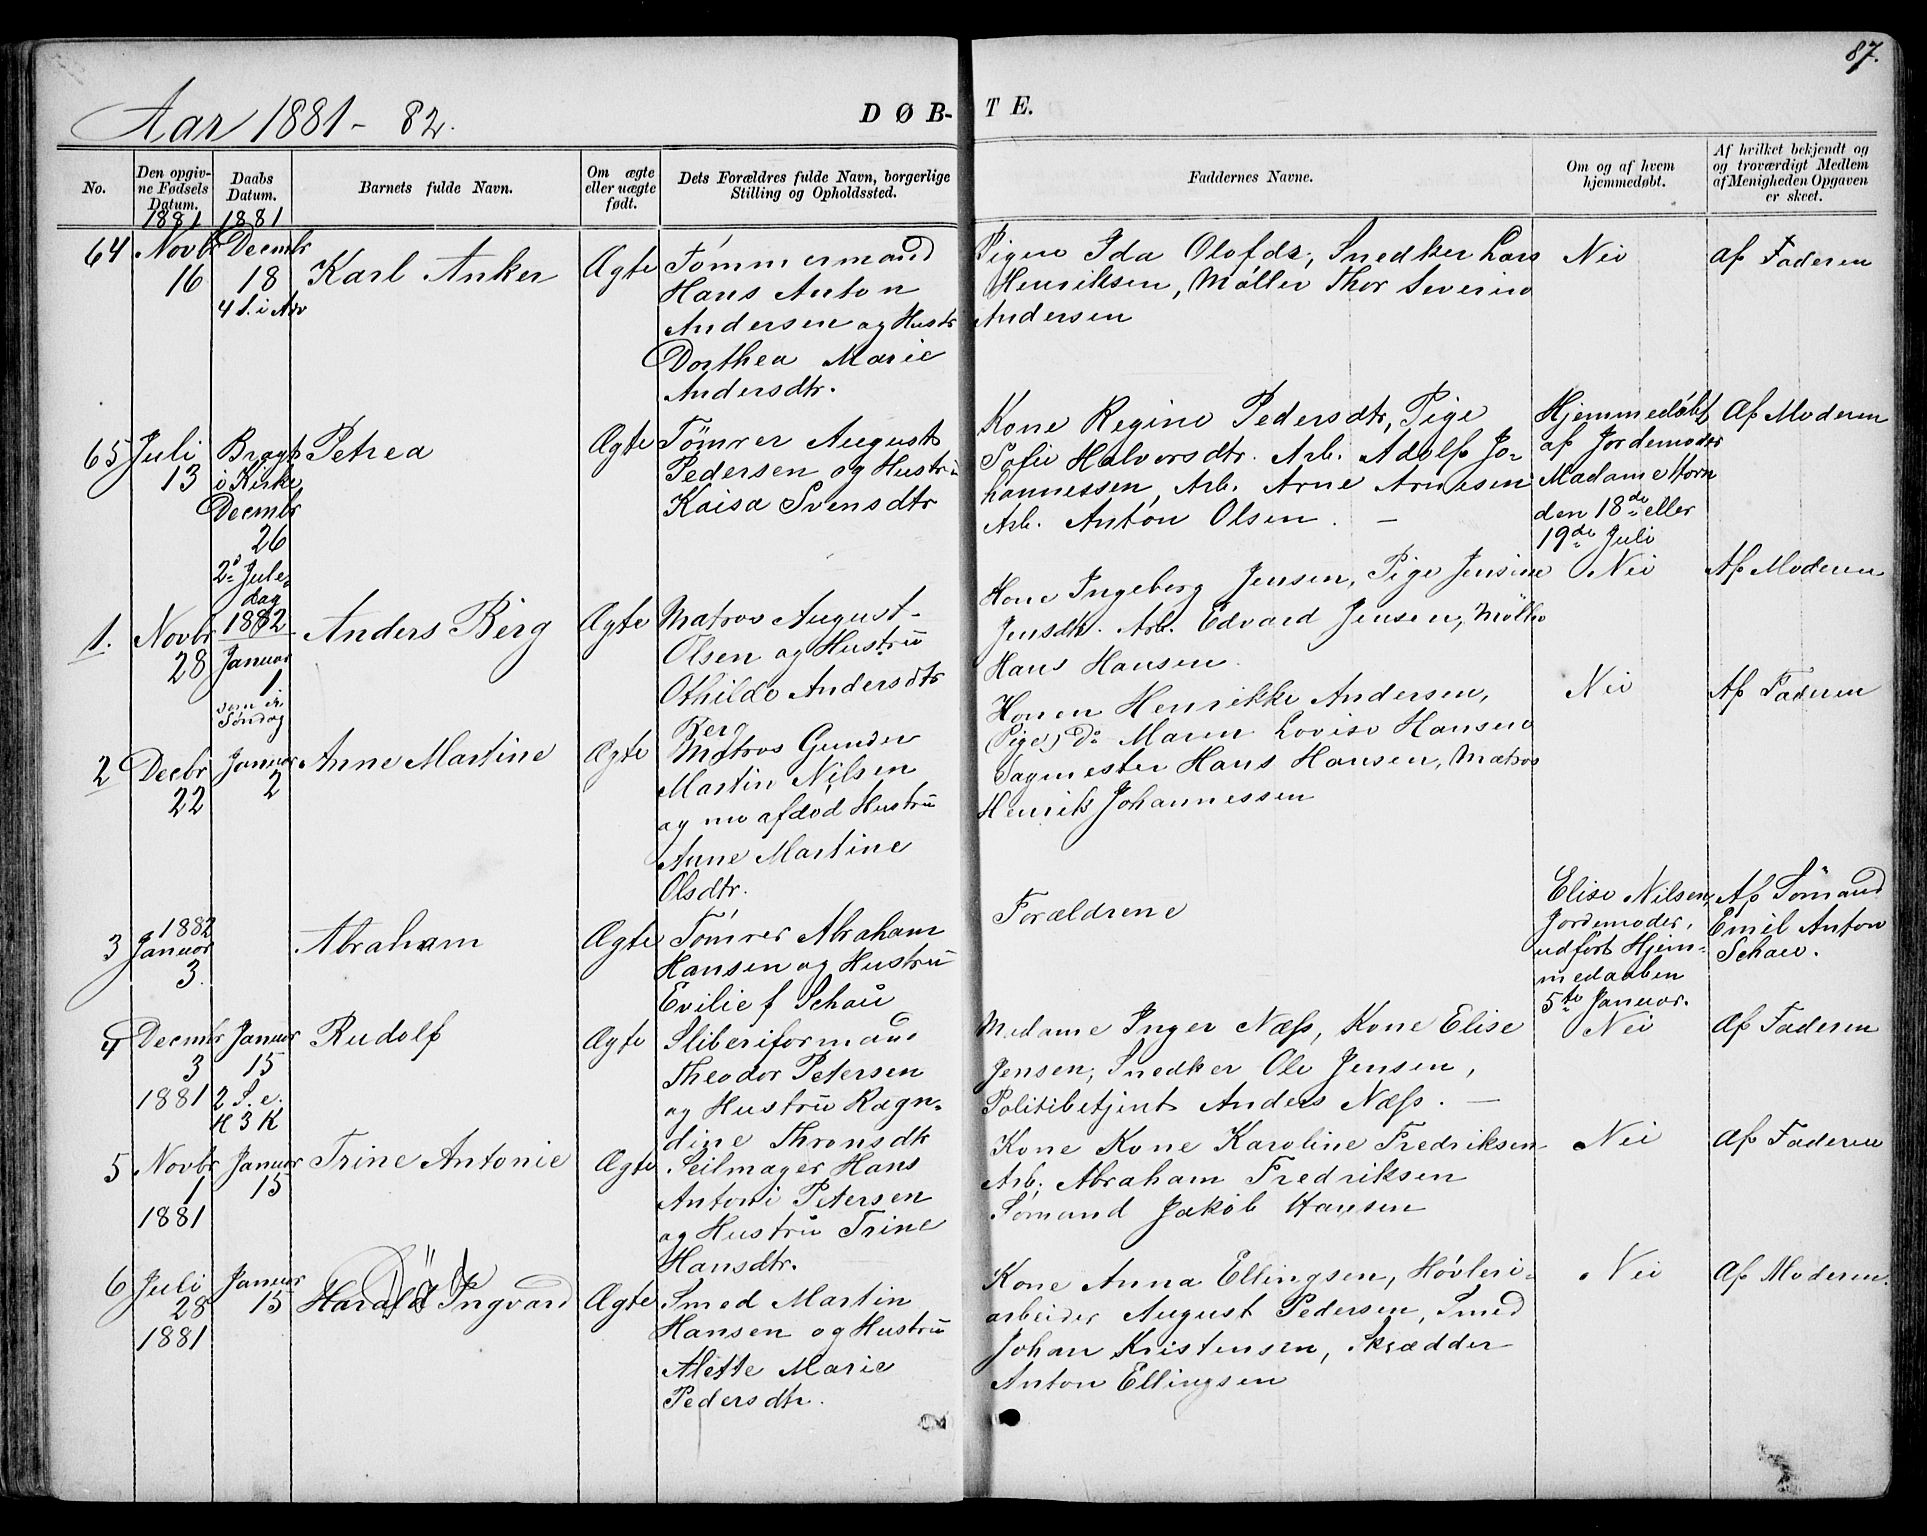 87.
Aar 1881 - 82.
DØB-TE.
No.
Den opgivne Fødsels Datum.
Daabs Datum.
Barnets fulde Navn.
Om ægte eller uægte født.
Dets Forældres fulde Navn, borgerlige Stilling og Opholdssted.
Faddernes Navne.
Om og af hvem hjemmedøbt.
Af hvilket bekjendt og og troværdigt Medlem af Menigheden Opgaven er skeet.
1881
1881
64
Novbr
16
Decmbr
18
4 S. i Adv
Karl Anker
Ægte
Tømmermand
Hans Anton
Andersen og Hustr
Dorthea Marie
Andersdtr.
Pigen Ida Olofds, Snedker Lars
Henriksen, Møller Thor Severin
Andersen
Nei
af Faderen
65
Juli
13
Bragt
i Kirke
Decmbr
26
2d Jule-
dag
Petrea
Ægte
Tömrer August
Pedersen og Hustru
Kaisa Svensdtr
Kone Regine Pedersdtr, Pige
Sofie Halvorsdtr. Arb. Adolf Jo-
hannessen, Arb. Arne Arnesen
Arb. Anton Olsen. —
Hjemmedøbt
af Jordemoder
Madame Horn
den 18de eller
19de Juli
Af Moderen
1.
Novbr
28
1882
Januar
1
som er
Søndag
Anders Berg
Ægte
Matros August
Olsen og Hustru
Othilde Andersdtr
Berg
Kone Ingeborg Jensen, Pige Jensine
Jensdtr. Arb. Edvard Jensen, Møller
Hans Hansen
Nei
Af Moderen
2
Decbr
22
Januar
2
Anne Martine
Ægte
Matros Gunder
Martin Nilsen
og nu afdød Hustru
Anne Martine
Olsdtr.
Konen Henrikke Andersen,
(Pige) Do Maren Lovise Hansen
Sagmester Hans Hansen, Matros
Henrik Johannessen
Nei
Af Faderen
3
1882
Januar
3.
Abraham
Ægte
Tömrer Abraham
Hansen og Hustru
Evilie f Schau
Forældrene
Elise Nilsen,
Jordemoder,
udført Hjem-
medaaben
5te Januar.
Af Sömand
Emil Anton
Schau.
4
Decmbr
3
1881
Januar
15
2 S. e.
H 3 K
Rudolf
Ægte
Sliberiformand
Theodor Petersen
og Hustru Ragn-
dine Thronsdtr
Madame Inger Næss, Kone Elise
Jensen, Snedker Ole Jensen,
Politibetjent Anders Næss. —
Nei
Af Faderen
5
Novbr
1
1881
Januar
15
Trine Antonie
Ægte
Seilmager Hans
Antoni Petersen
og Hustru Trine
Hansdtr.
Kone Kone Karoline Fredriksen
Arb. Abraham Fredriksen
Sømand Jakob Hansen
Nei
Af Faderen
6
Juli
28
1881
Januar
15
Död
Harald Ingvard
Ægte
Smed Martin
Hansen og Hustru
Alette Marie
Pedersdtr.
Kone Anna Ellingsen, Høvleri-
arbeider August Pedersen, Smed
Johan Kristensen, Skrædder
Anton Ellingsen
Nei
Af Moderen.